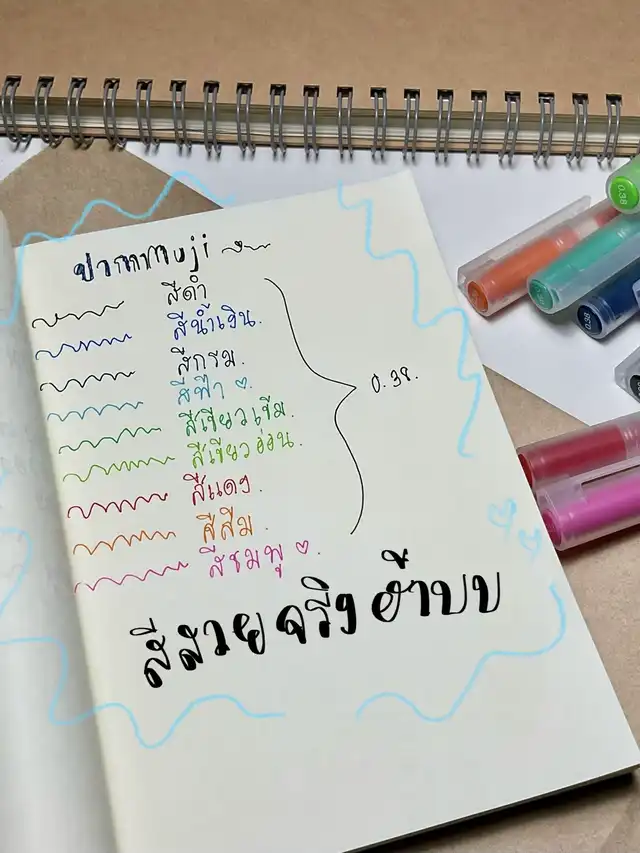 ปากกาmuji
สีดำ
สีน้ำเงิน.
สีกรม.
สีฟ้า ♡.
สีเขียวเข้ม.
สีเขียวอ่อน.
สีแดง.
สีส้ม.
สีชมพู ♡.
0.38.
สีสวยจริงอ้าบบ
0.38
0.38